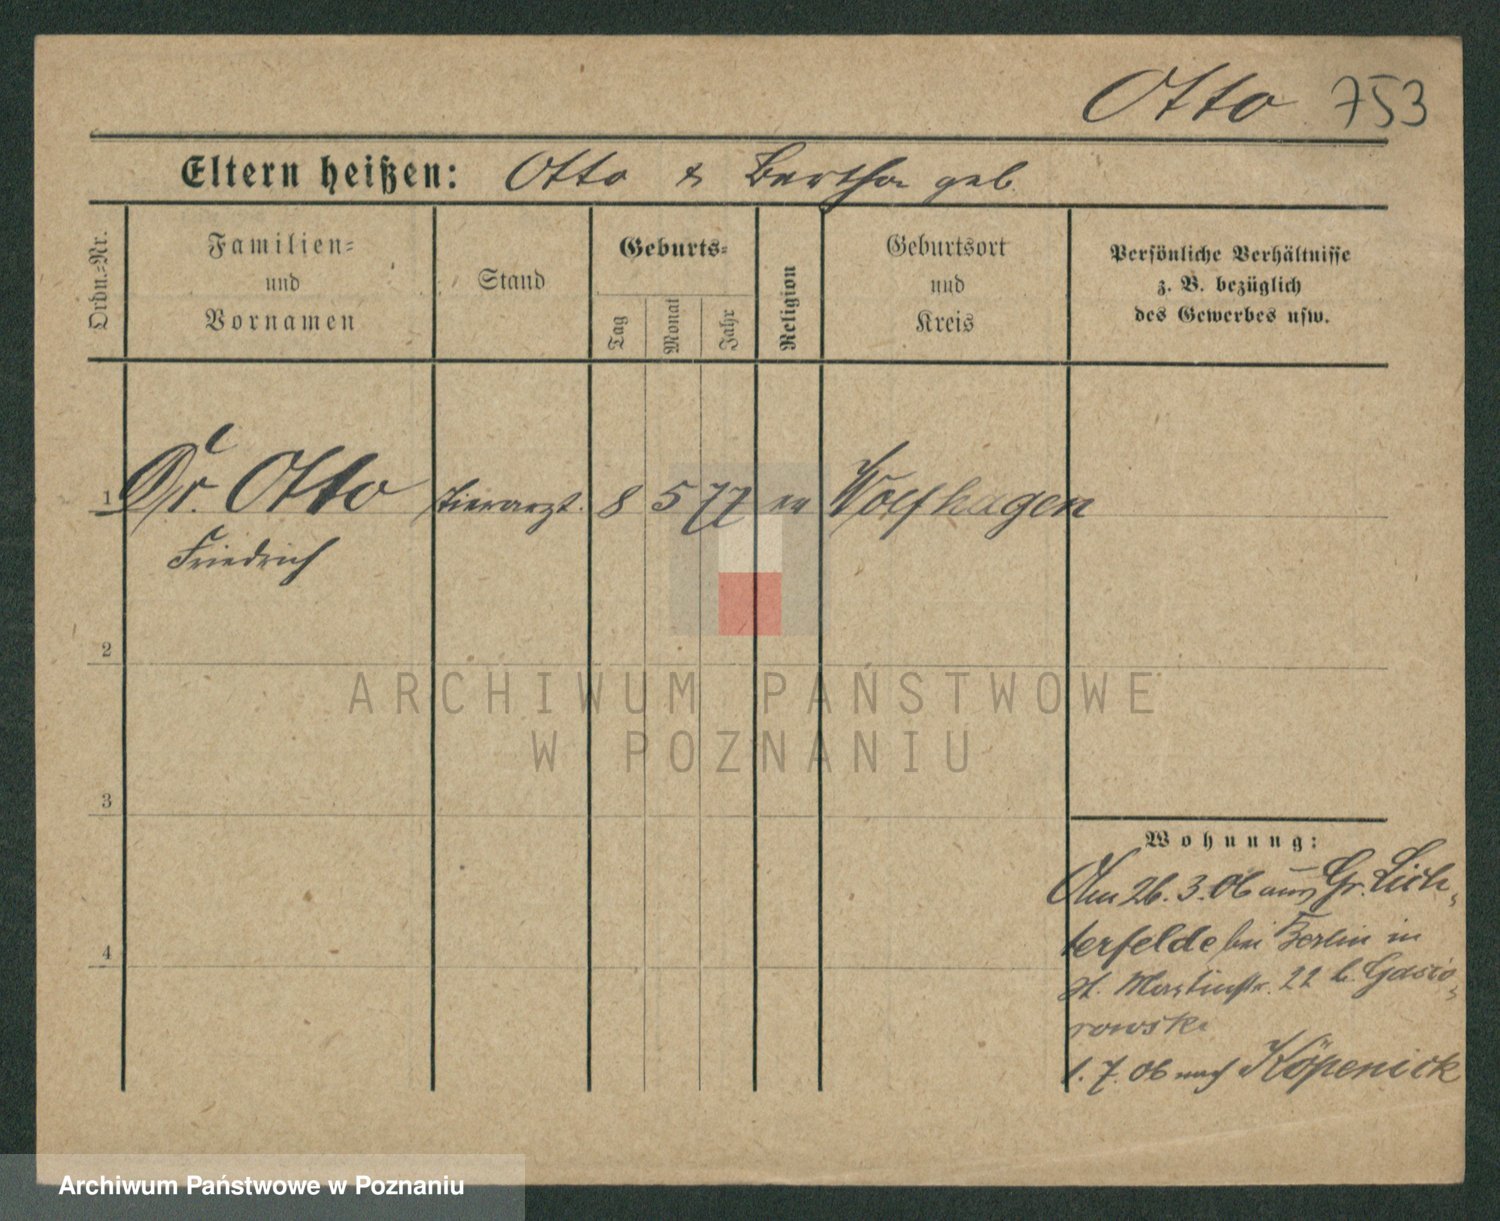 Otto 753
Eltern heißen: Otto & Bertha geb
Ordn.-Nr.
Familien-
und
Vornamen
Stand
Geburts-
Tag
Monat
Jahr
Religion
Geburtsort
und
Kreis
Persönliche Verhältnisse
z. B. bezüglich
des Gewerbes usw.
1 Dr. Otto Tierarzt. 8 5 77 ev Wolfhagen
Friedrich
2
ARCHIWUM PAŃSTWOWE
W POZNANIU
3
Wohnung:
Am 26.3.06 aus Gr. Lich-
terfelde bei Berlin in
4
St. Martinstr. 22 b. Gasio-
rowski
1.7.06 nach Köpenick
Archiwum Państwowe w Poznaniu